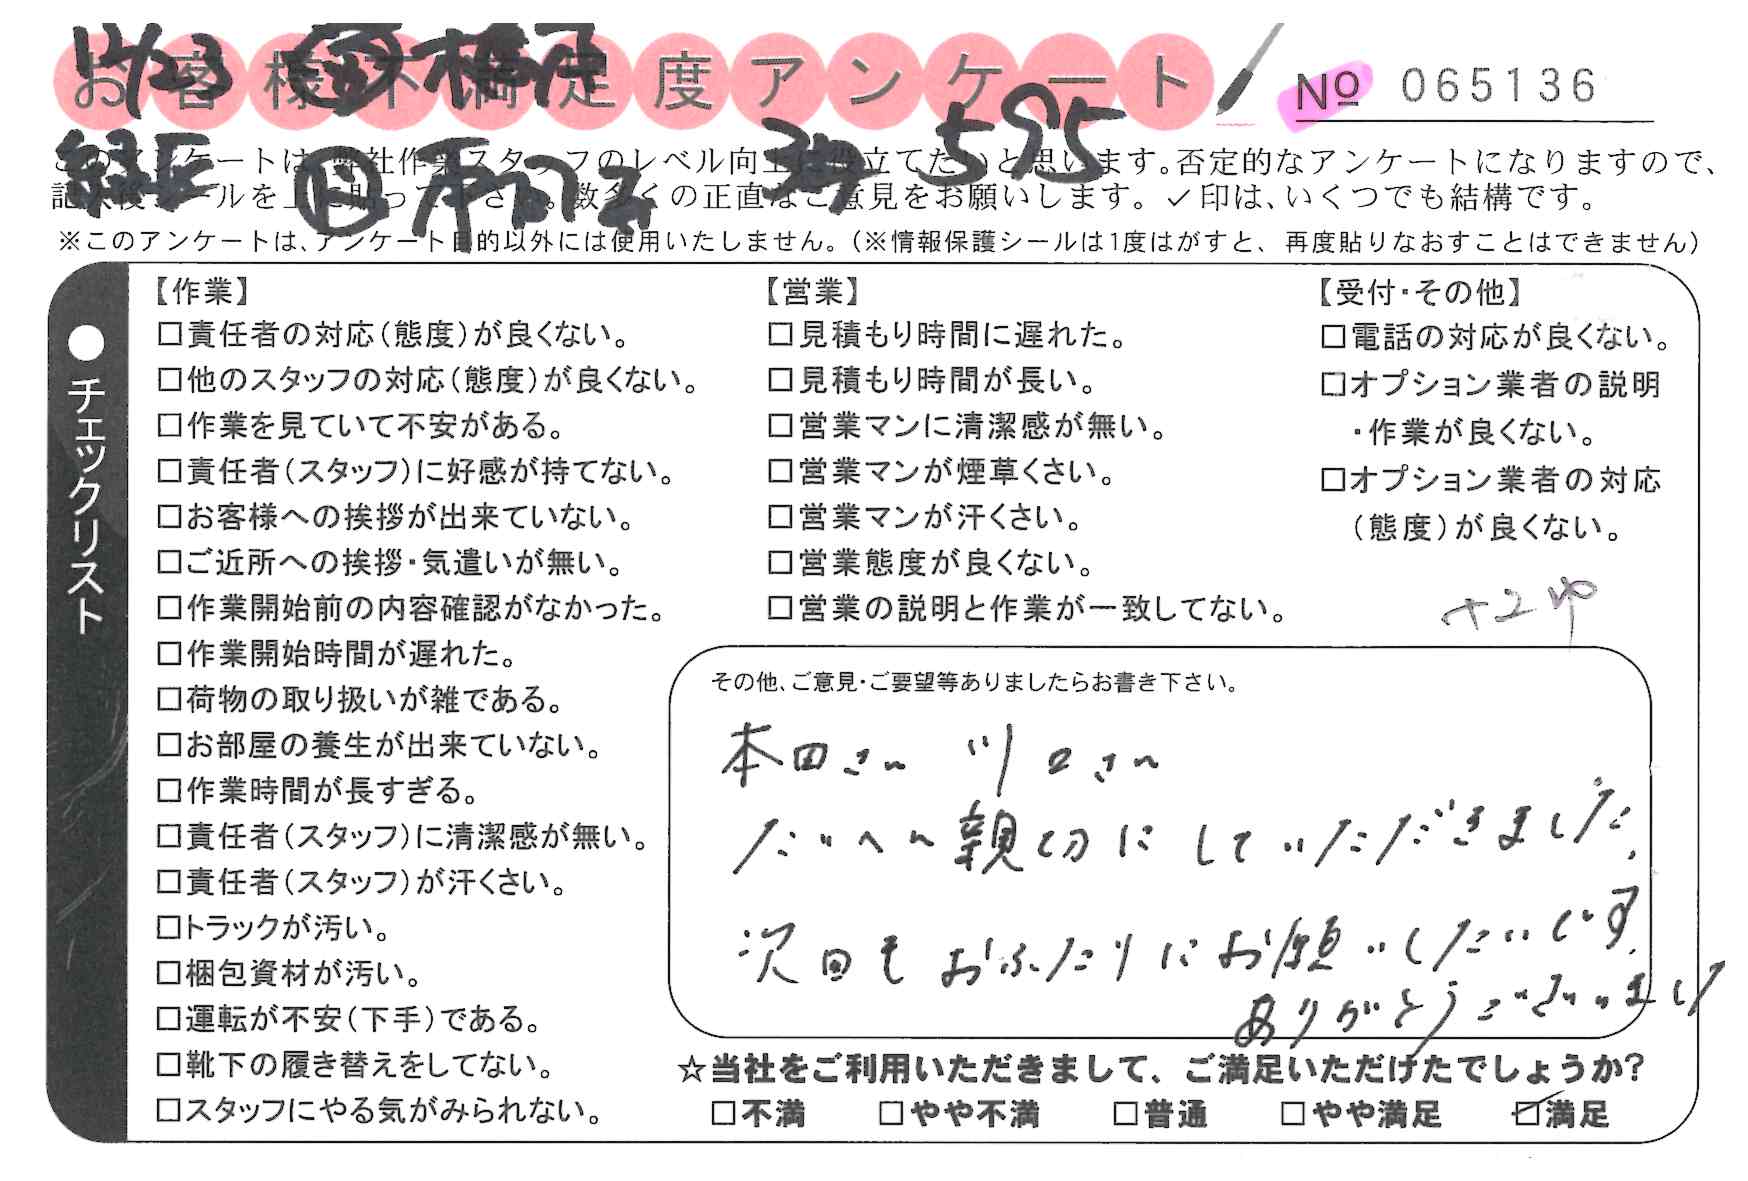 お客様不満足度アンケート
No 065136
このアンケートは、弊社作業スタッフのレベル向上に役立てたいと思います。否定的なアンケートになりますので、
記入後シールを上に貼って下さい。数多くの正直なご意見をお願いします。✓印は、いくつでも結構です。
※このアンケートは、アンケート目的以外には使用いたしません。(※情報保護シールは1度はがすと、再度貼りなおすことはできません)
●チェックリスト
【作業】
□責任者の対応(態度)が良くない。
□他のスタッフの対応(態度)が良くない。
□作業を見ていて不安がある。
□責任者(スタッフ)に好感が持てない。
□お客様への挨拶が出来ていない。
□ご近所への挨拶・気遣いが無い。
□作業開始前の内容確認がなかった。
□作業開始時間が遅れた。
□荷物の取り扱いが雑である。
□お部屋の養生が出来ていない。
□作業時間が長すぎる。
□責任者(スタッフ)に清潔感が無い。
□責任者(スタッフ)が汗くさい。
□トラックが汚い。
□梱包資材が汚い。
□運転が不安(下手)である。
□靴下の履き替えをしてない。
□スタッフにやる気がみられない。
【営業】
□見積もり時間に遅れた。
□見積もり時間が長い。
□営業マンに清潔感が無い。
□営業マンが煙草くさい。
□営業マンが汗くさい。
□営業態度が良くない。
□営業の説明と作業が一致してない。
【受付・その他】
□電話の対応が良くない。
□オプション業者の説明
・作業が良くない。
□オプション業者の対応
(態度)が良くない。
その他、ご意見・ご要望等ありましたらお書き下さい。
本田さん 川口さん
たいへん親切にしていただきました。
次回もおふたりにお願いしたいです。
ありがとうございました
☆当社をご利用いただきまして、ご満足いただけたでしょうか?
□不満 □やや不満 □普通 □やや満足 ☑満足